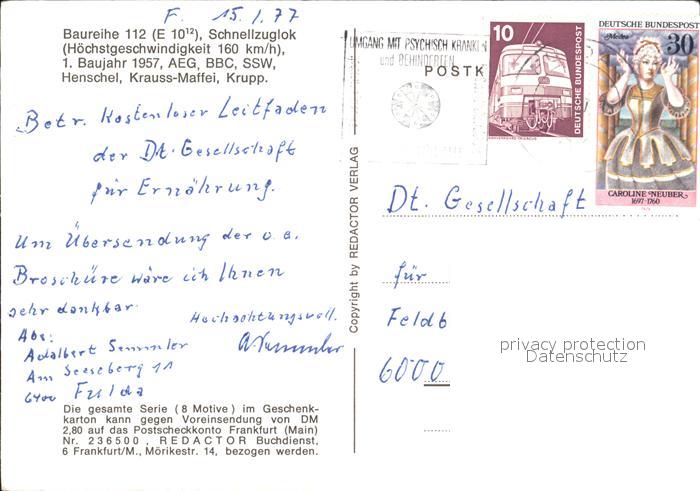 F. 15.1.77
Baureihe 112 (E 10¹²), Schnellzuglok
(Höchstgeschwindigkeit 160 km/h),
1. Baujahr 1957, AEG, BBC, SSW,
Henschel, Krauss-Maffei, Krupp.
Betr. Kostenloser Leitfaden
der Dt. Gesellschaft
für Ernährung.
Um Übersendung der o. a.
Broschüre wäre ich Ihnen
sehr dankbar.
Hochachtungsvoll.
Abs:
Adalbert Semmler
Am Seeseberg 11
6400 Fulda
Die gesamte Serie (8 Motive) im Geschenk-
karton kann gegen Voreinsendung von DM
2,80 auf das Postscheckkonto Frankfurt (Main)
Nr. 236500, REDACTOR Buchdienst,
6 Frankfurt/M., Mörikestr. 14, bezogen werden.
Copyright by REDACTOR VERLAG
UMGANG MIT PSYCHISCH KRANKEN
und BEHINDERTEN
POSTK
10
DEUTSCHE BUNDESPOST
DEUTSCHE BUNDESPOST
Medea
30
CAROLINE NEUBER
1697-1760
Dt. Gesellschaft
für
Feldb
6000
privacy protection
Datenschutz